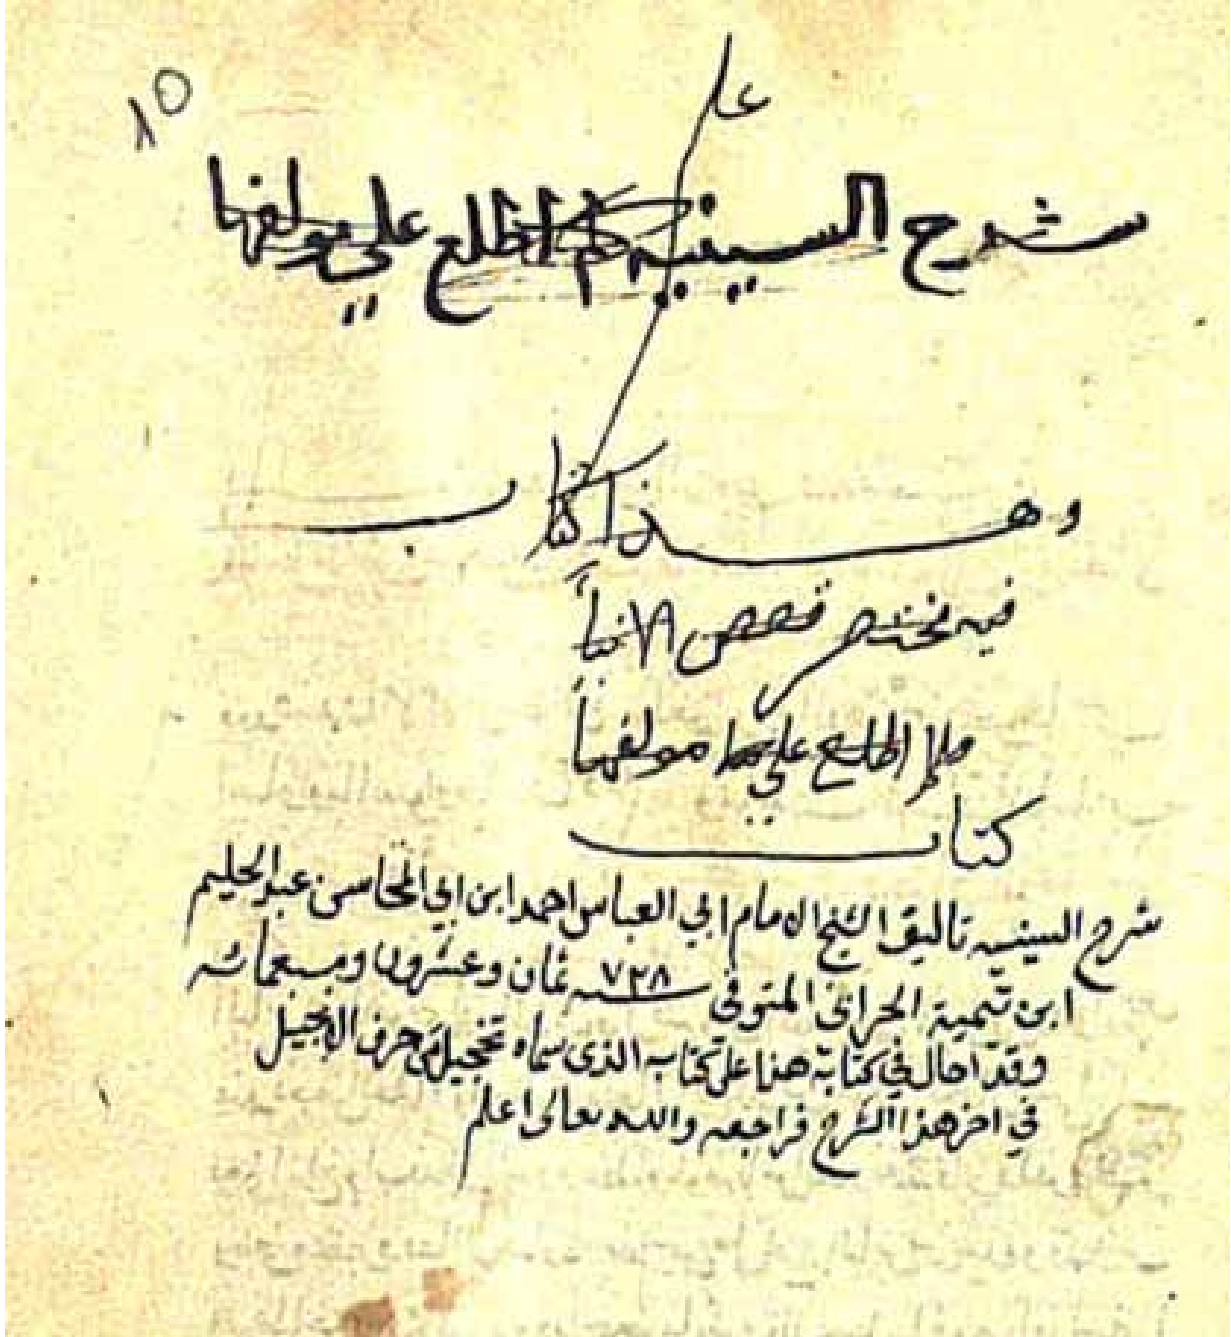 ٨٥
عل
شرح السينيه لم اطلع علي مولفها
وهذا كتاب
فيه مختصر قصص الانبيا
فلم اطلع علي مولفها
كتاب
شرح السينيه تاليف الشيخ الامام ابي العباس احمد ابن ابي المحاسن عبد الحليم
ابن تيمية الحراني المتوفى سنه ٧٢٨ ثمان وعشرون وسبعمائه
وقد احال في كتابة هنا على كتابه الذى سماه تخجيل من حرف الانجيل
في اخر هذا الشرح فراجعه والله تعالى اعلم